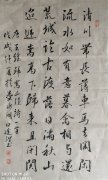 清川帶長薄車馬去閑閑
流水如有意暮禽相與還
荒城臨古渡落日滿秋山
迢遞嵩高下歸來且閉關